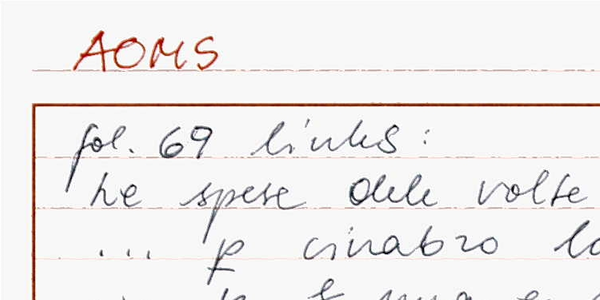 AOMS
fol. 69 links:
Le spese dele volte
... p cinabro